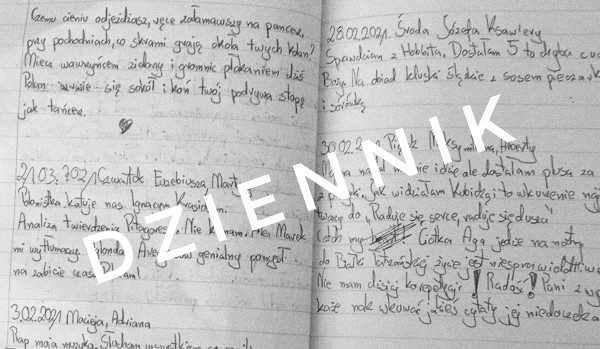 Czemu cieniu odjeżdżasz, ręce załamawszy na pancerz,
przy pochodniach, co skrami grają około twych kolan?
Miecz wawrzynem zielony i gromnic płakaniem dziś
Polan rwie się sokół i koń twój podrywa stopę
jak tancerz.
21.03.2021 Czwartek Euzebiusza, Marty
Polonistka katuje nas Ignacym Krasickim.
Analiza twierdzenia Pitagoresa. Nie
mi wytłumaczy. Blondas genialny pomysł
na zabicie czasu
3.02.2021 Macieja, Adriana
Rap moja muzyka. Słucham wszystkiego
28.02.2021. Środa Józefa Ksawiery
Sprawdzian z Hobbita. Dostałam 5 to chyba cud
Boży. Na obiad kluski śląskie z sosem pieczark
i
30.02.2021 Piątek
idzie ale dostałam plusa za
z jak widziałam Kubicę
twarzą do "Raduje się serce, raduje się dusza"
Ciotka Aga jedzie na narty
do Białki Tatrzańskiej życie jest niesprawiedliwe
Nie mam dzisiaj korepetycji! Radość! Pani z
każe nam wkuwać jakieś cytaty jej niedoczeka
DZIENNIK